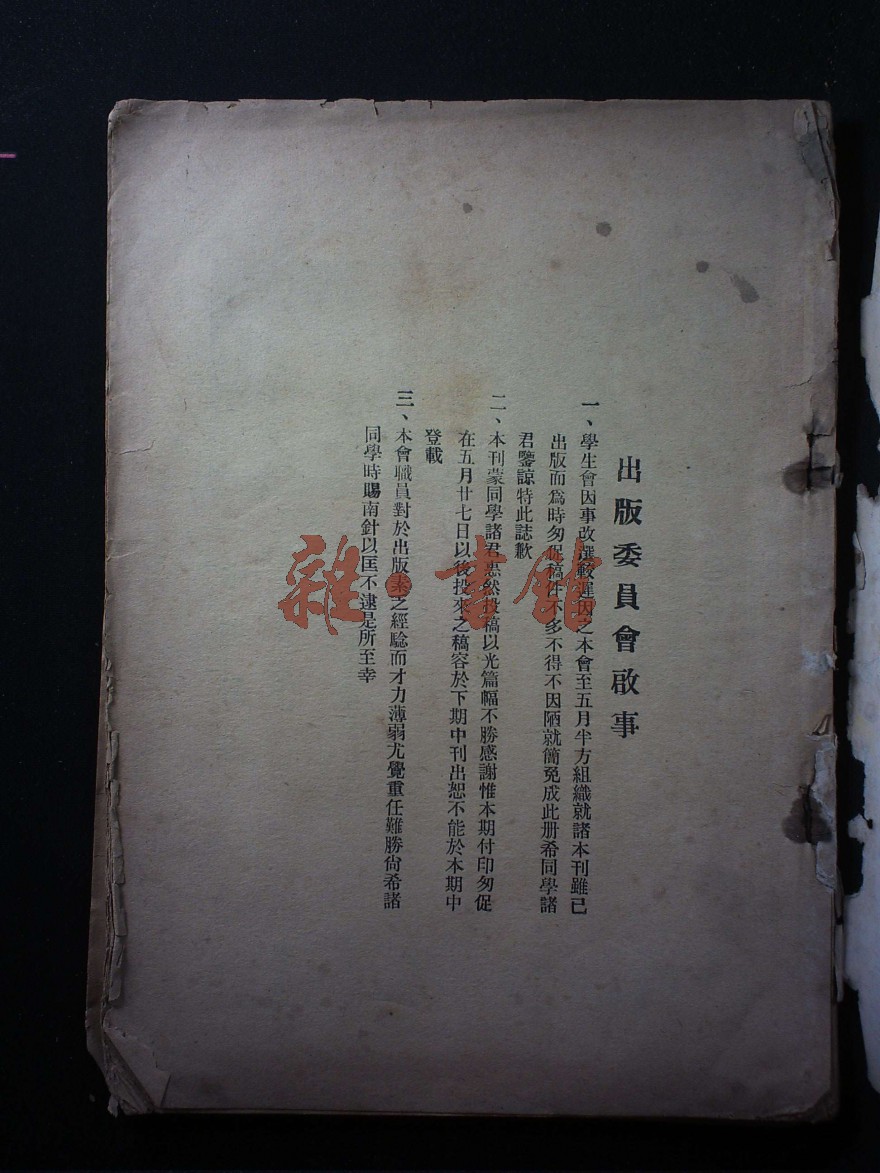 出版委員會啟事
一、學生會因事改選較遲因之本會至五月半方組織就諸本刊雖已
出版而爲時匆促稿件不多不得不因陋就簡免成此册希同學諸
君鑒諒特此誌歉
二、本刊蒙同學諸君惠然投稿以光篇幅不勝感謝惟本期付印匆促
在五月廿七日以後投來之稿容於下期中刊出恕不能於本期中
登載
三、本會職員對於出版素之經驗而才力薄弱尤覺重任難勝尙希諸
同學時賜南針以匡不逮是所至幸
雜·書館